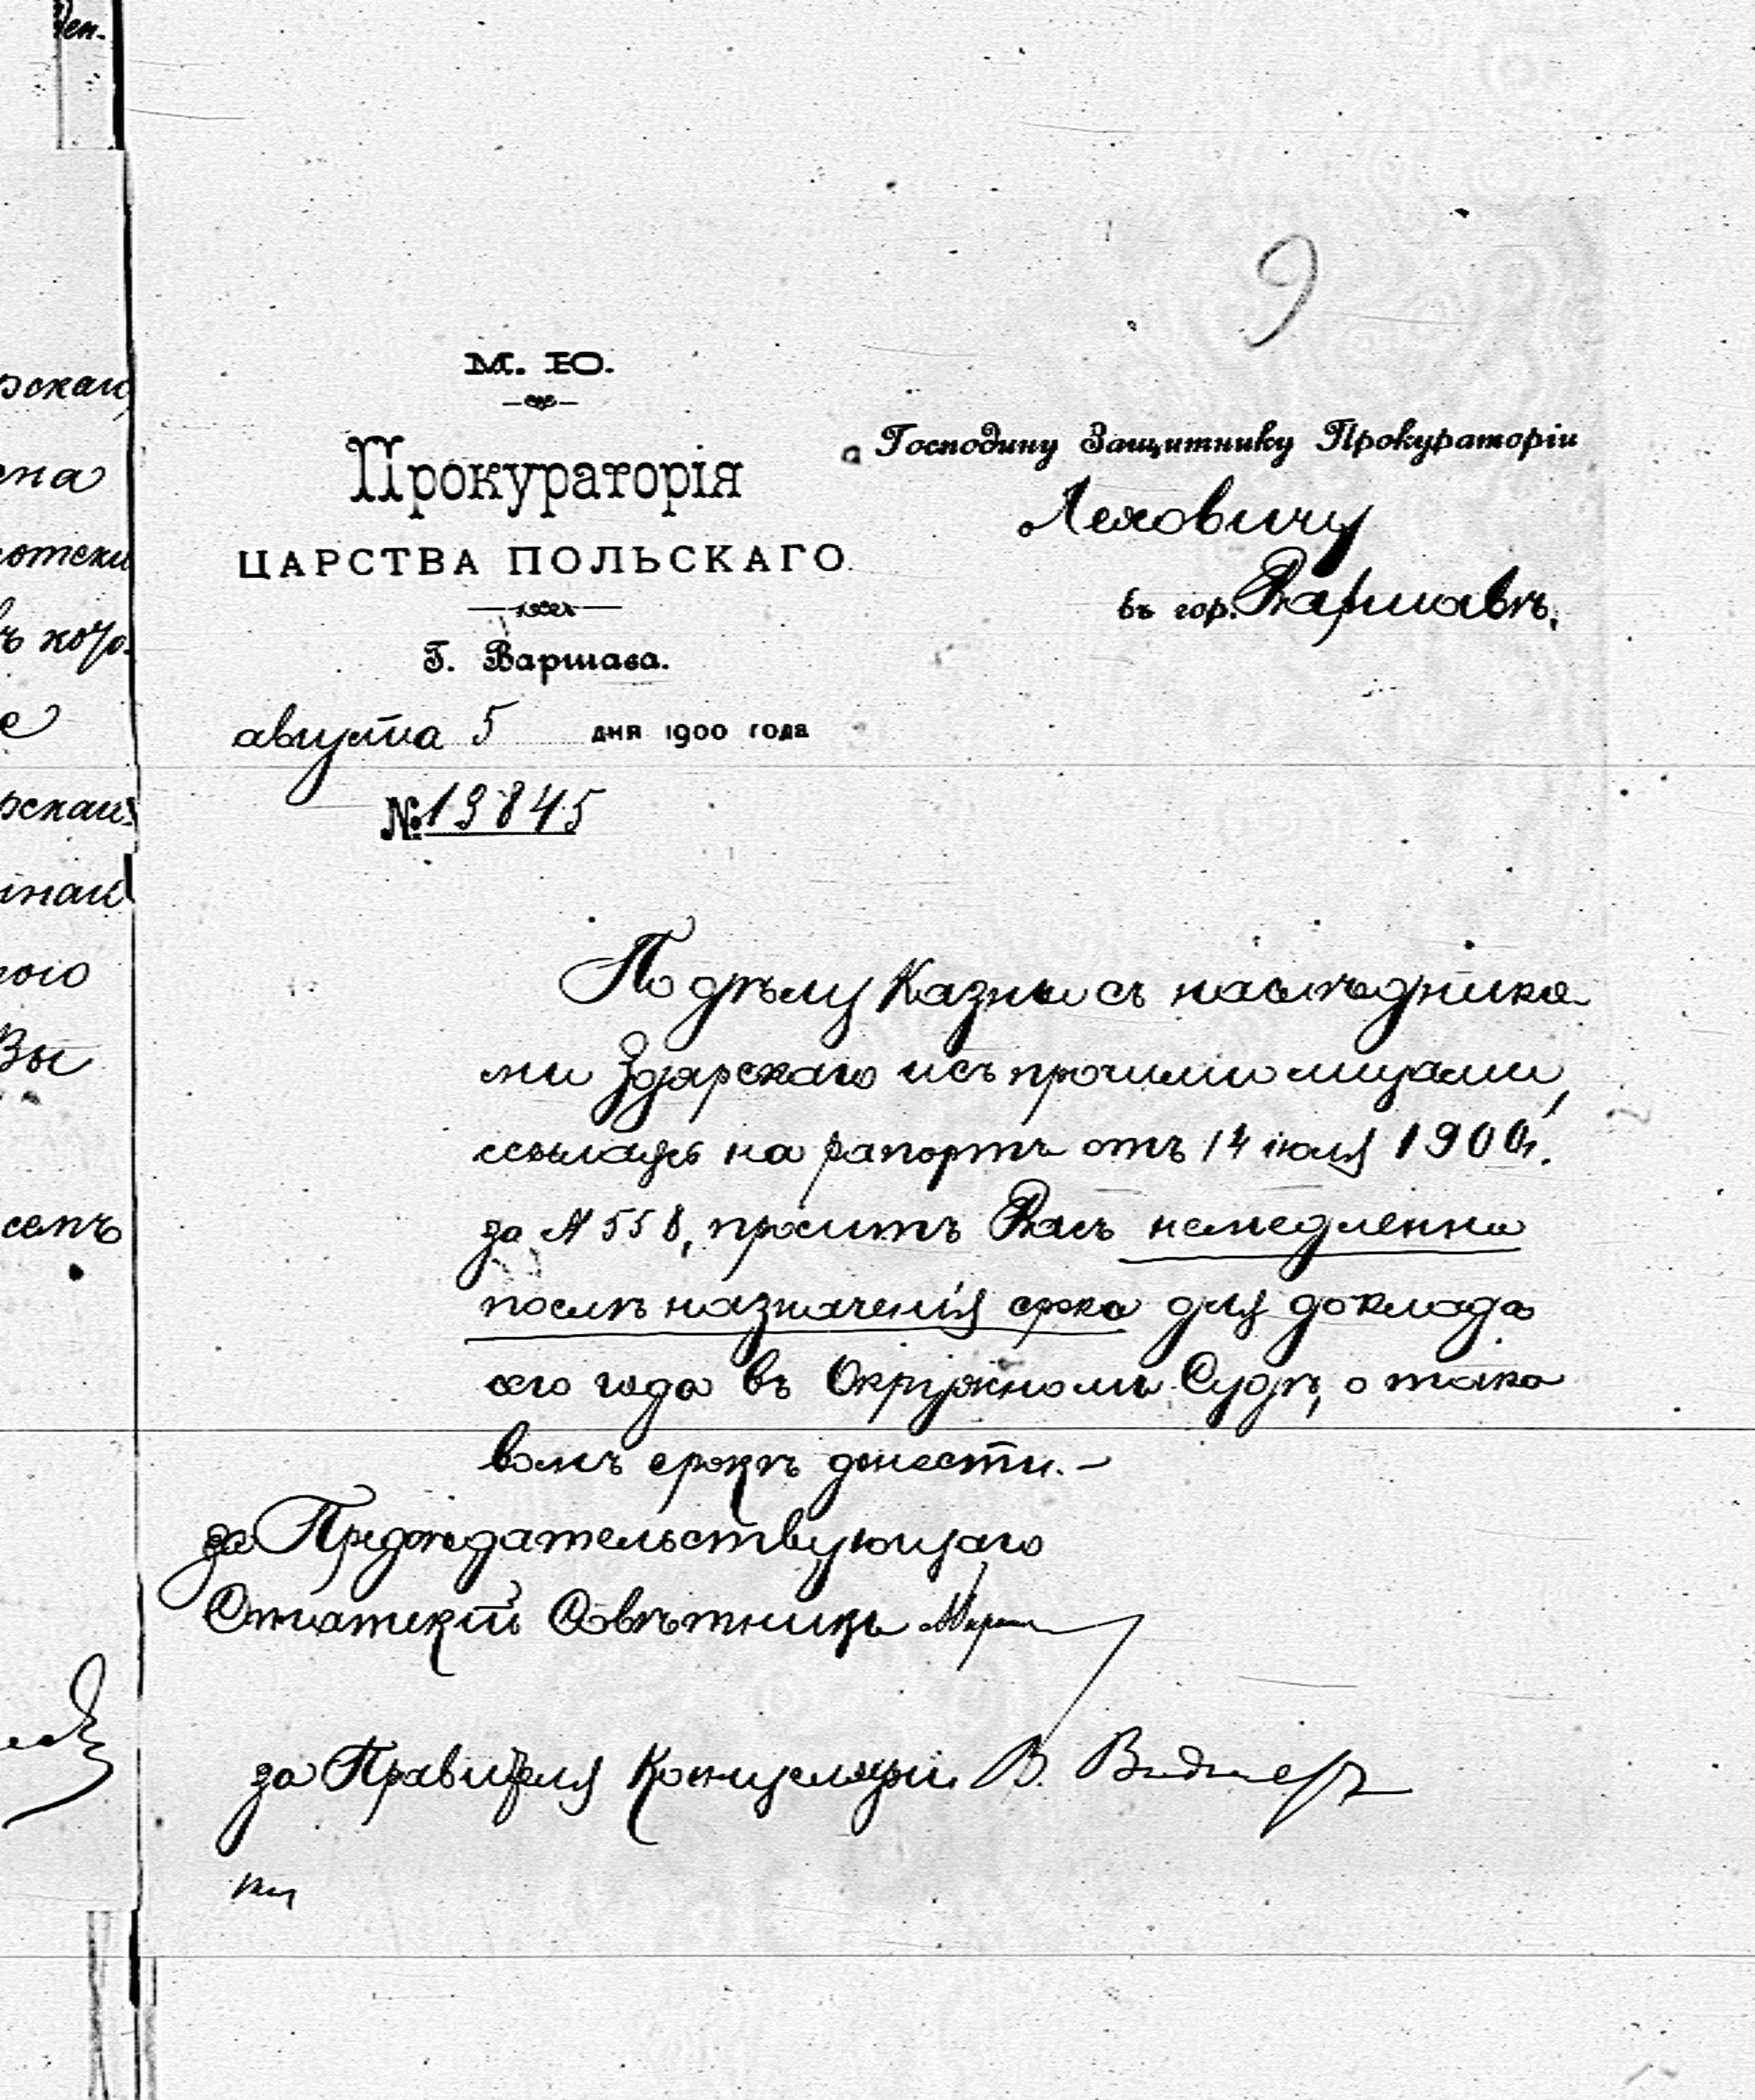 9
М. Ю.
Прокураторія
ЦАРСТВА ПОЛЬСКАГО.
Г. Варшава.
августа 5 дня 1900 года
№ 13845
Господину Защитнику Прокураторіи
Леховичу
въ гор. Варшавѣ.
По дѣлу Казны съ наслѣдника-
ми Здярскаго и съ прочими лицами,
ссылаясь на рапортъ отъ 14 іюля 1900 г.
за № 558, проситъ Васъ немедленно
послѣ назначенія срока для доклада
сего года въ Окружномъ Судѣ, о тако
вомъ срокѣ донести.-
за Предсѣдательствующаго
Статскій Совѣтникъ
за Правителя Канцеляріи В.
ена
отеки
е
ного
Вы